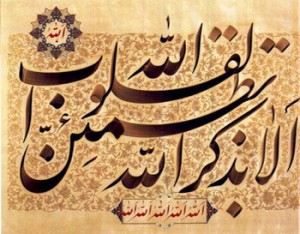 الله
ألا بذكر الله تطمئن القلوب
الله الله الله الله الله